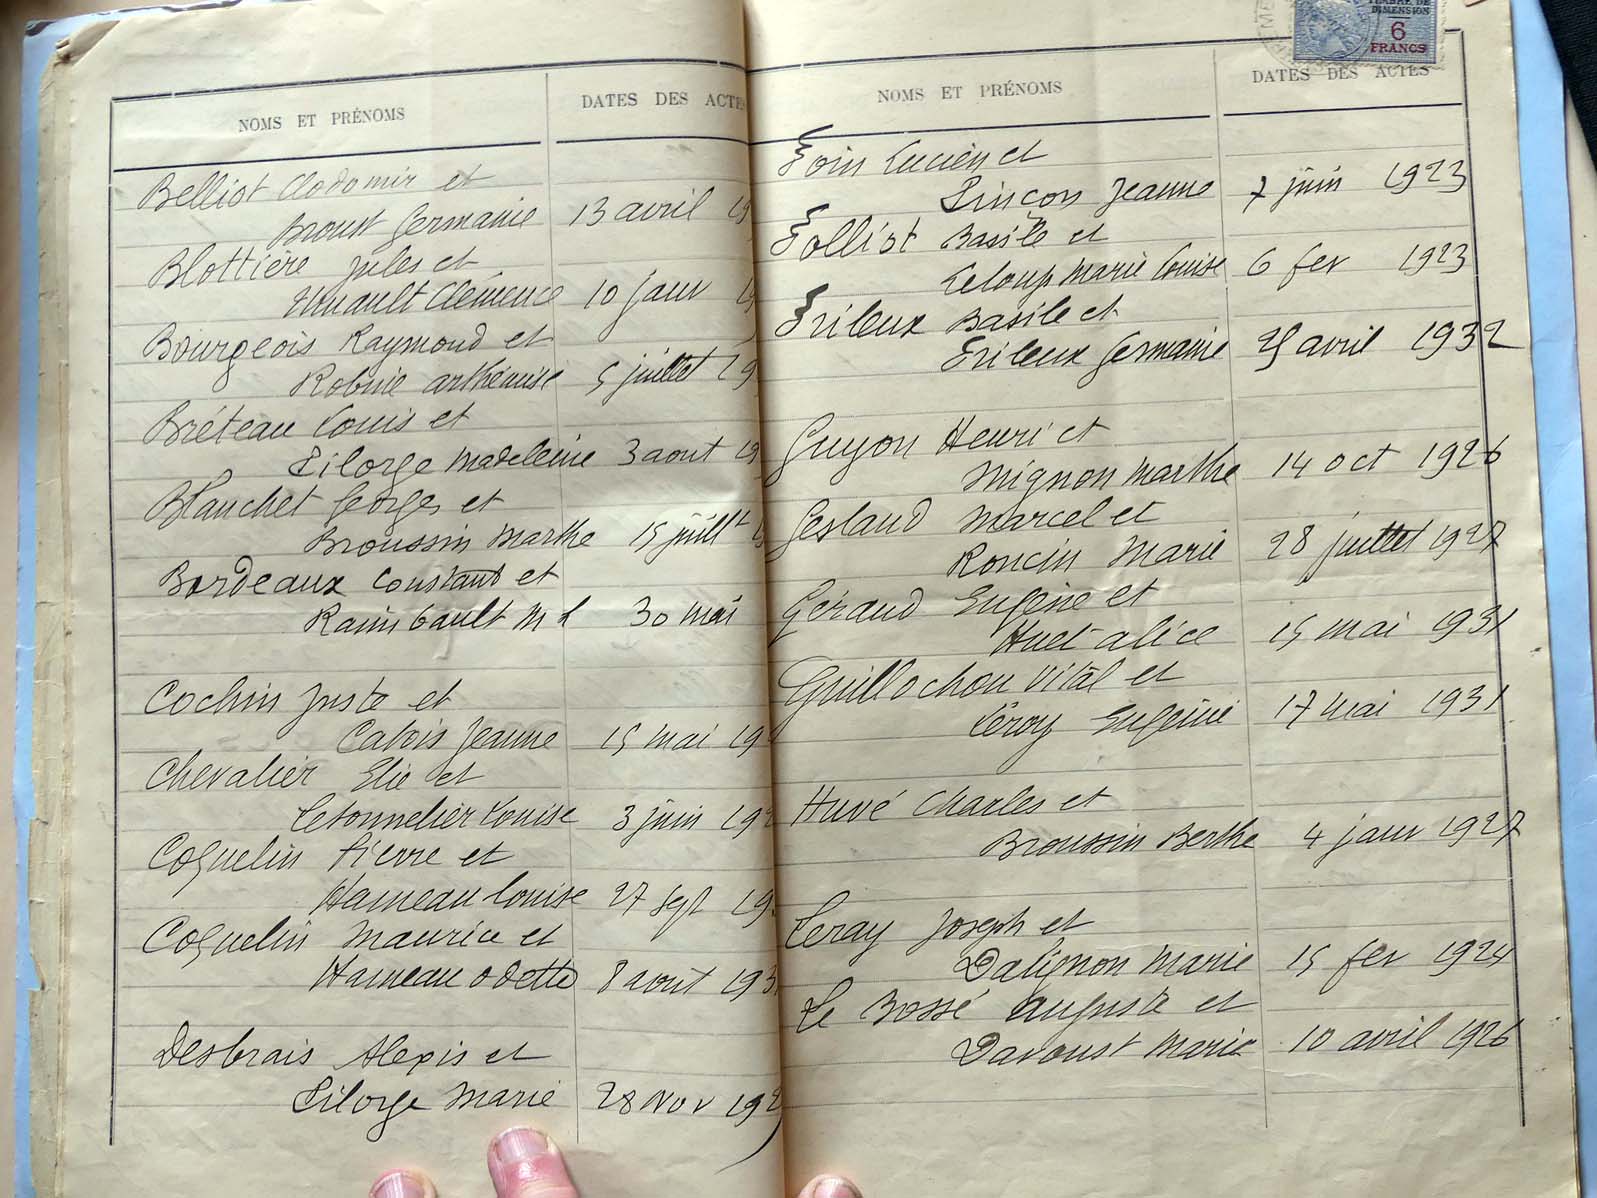 NOMS ET PRÉNOMS DATES DES ACTE
Belliot Clodomir et
Broust Germaine 13 avril 19
Blottière Jules et
Clémence 10 janv
Bourgeois Raymond et
Robine arthémise 5 juillet 19
Bréteau Louis et
Pilorge Madeleine 3 aout 19
Blanchet Georges et
Broussin Marthe 15 juillt
Bordeaux Constant et
Raimbault M L 30 mai
Cochin Juste et
Calois Jeanne 15 mai 19
Chevalier Elie et
Letonnelier Louise 3 juin 19
Coquelin Pierre et
Hameau Louise 27 sept 19
Coquelin Maurice et
Hameau Odette 8 aout 193
Desbrais Alexis et
Pilorge Marie 28 Nov 192
TIMBRE DE
DIMENSION
6
FRANCS
NOMS ET PRÉNOMS DATES DES ACTES
Foin Lucien et
Pinçon Jeanne 7 juin 1923
Folliot Basile et
Leloup Marie Louise 6 fev 1923
Frileux Basile et
Frileux Germaine 25 avril 1932
Guyon Henri et
Mignon Marthe 14 oct 1926
Gesland Marcel et
Roncin Marie 28 juillet 1927
Géraud Eugène et
Huet alice 15 mai 1931
Guillochon Vital et
Léroy Eugénie 17 mai 1931
Huvé Charles et
Broussin Berthe 4 janv 1927
Leray Joseph et
Dalignon Marie 15 fev 1924
Le Bossé Auguste et
Davoust Marie 10 avril 1926